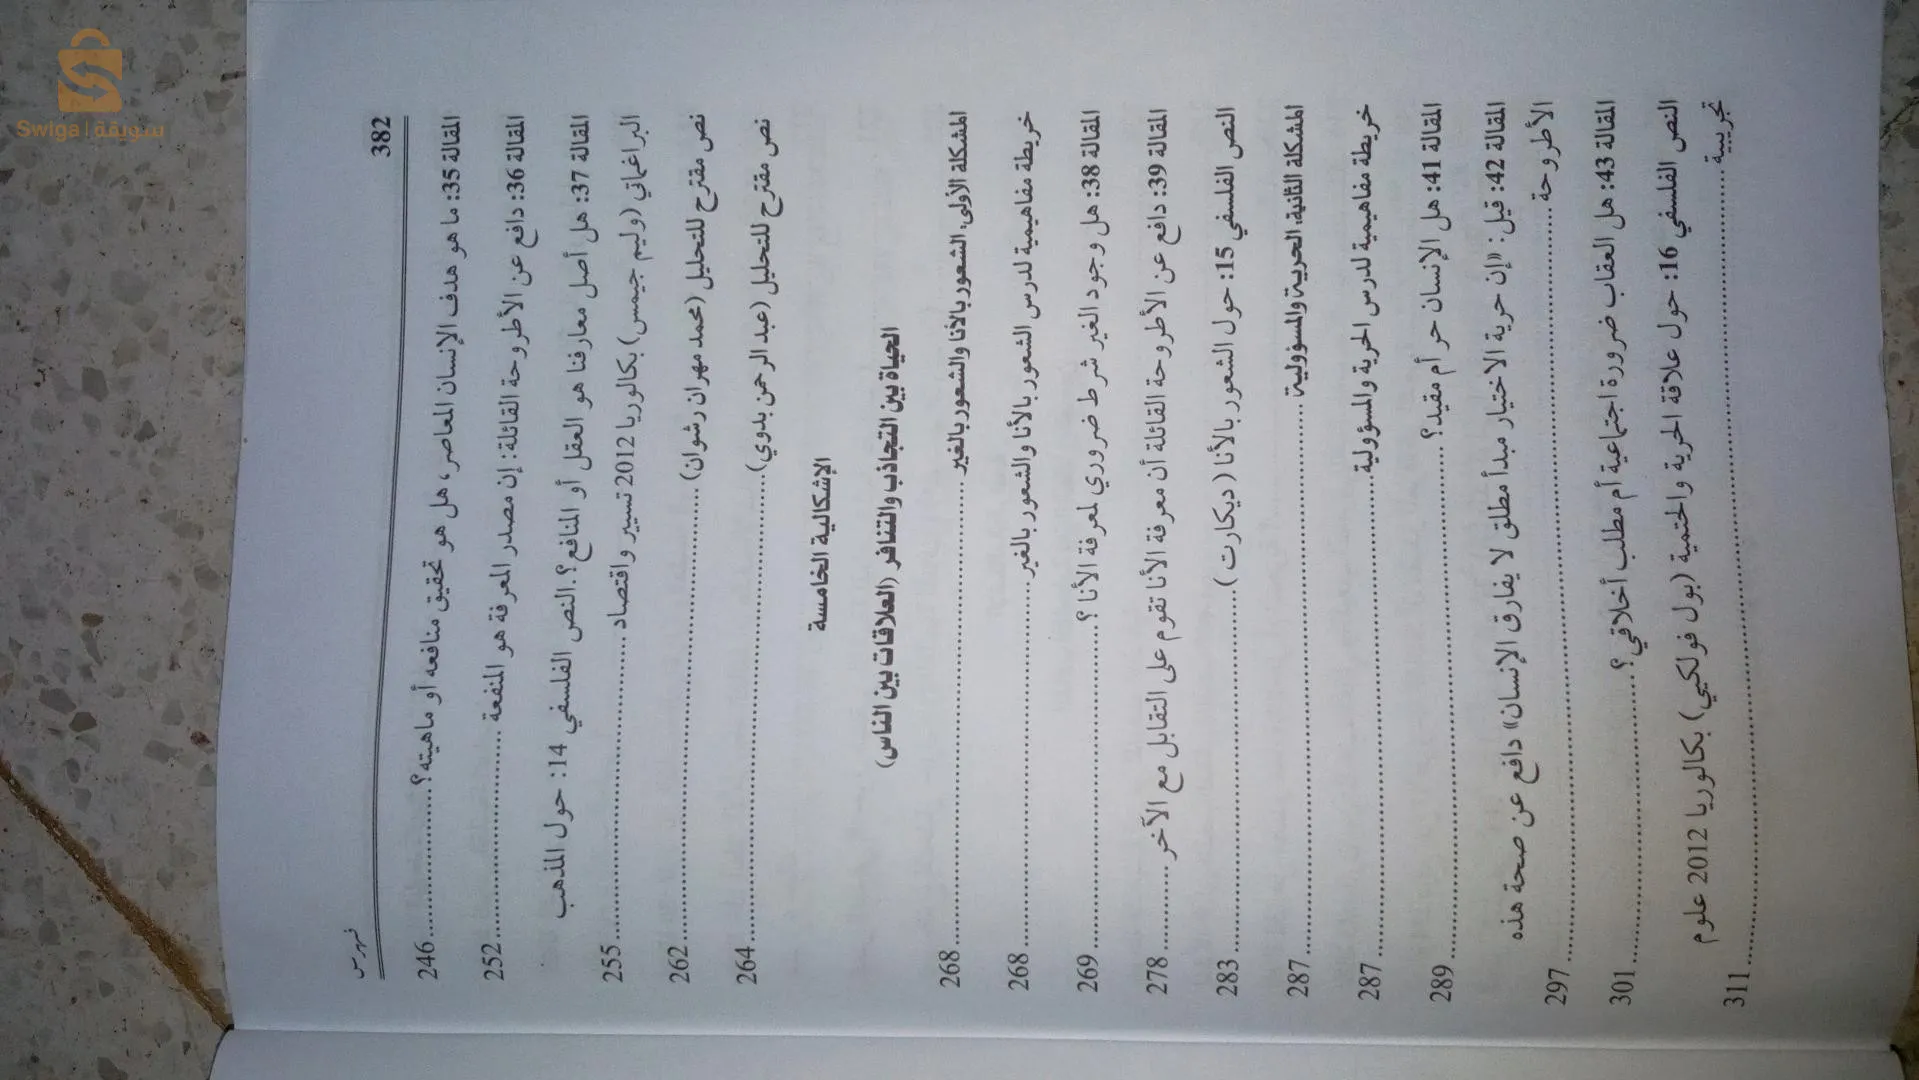 سويقة | Swiga
382
فهرس
المقالة 35: ما هو هدف الإنسان المعاصر، هل هو تحقيق منافعه أو ماهيته؟ 246
المقالة 36: دافع عن الأطروحة القائلة: إن مصدر المعرفة هو المنفعة 252
المقالة 37: هل أصل معارفنا هو العقل أو المنافع؟. النص الفلسفي 14: حول المذهب
البراغماتي (وليم جيمس) بكالوريا 2012 تسيير واقتصاد 255
نص مقترح للتحليل (محمد مهران رشوان) 262
نص مقترح للتحليل (عبد الرحمن بدوي) 264
الإشكالية الخامسة
الحياة بين التجاذب والتنافر (العلاقات بين الناس)
المشكلة الأولى: الشعور بالأنا والشعور بالغير 268
خريطة مفاهيمية لدرس الشعور بالأنا والشعور بالغير 268
المقالة 38: هل وجود الغير شرط ضروري لمعرفة الأنا؟ 269
المقالة 39: دافع عن الأطروحة القائلة أن معرفة الأنا تقوم على التقابل مع الآخر 278
النص الفلسفي 15: حول الشعور بالأنا (ديكارت) 283
المشكلة الثانية: الحرية والمسؤولية 287
خريطة مفاهيمية لدرس الحرية والمسؤولية 287
المقالة 41: هل الإنسان حر أم مقيد؟ 289
المقالة 42: قيل: «إن حرية الاختيار مبدأ مطلق لا يفارق الإنسان» دافع عن صحة هذه
الأطروحة 297
المقالة 43: هل العقاب ضرورة اجتماعية أم مطلب أخلاقي؟ 301
النص الفلسفي 16: حول علاقة الحرية والحتمية (بول فولكيي) بكالوريا 2012 علوم
تجريبية 311